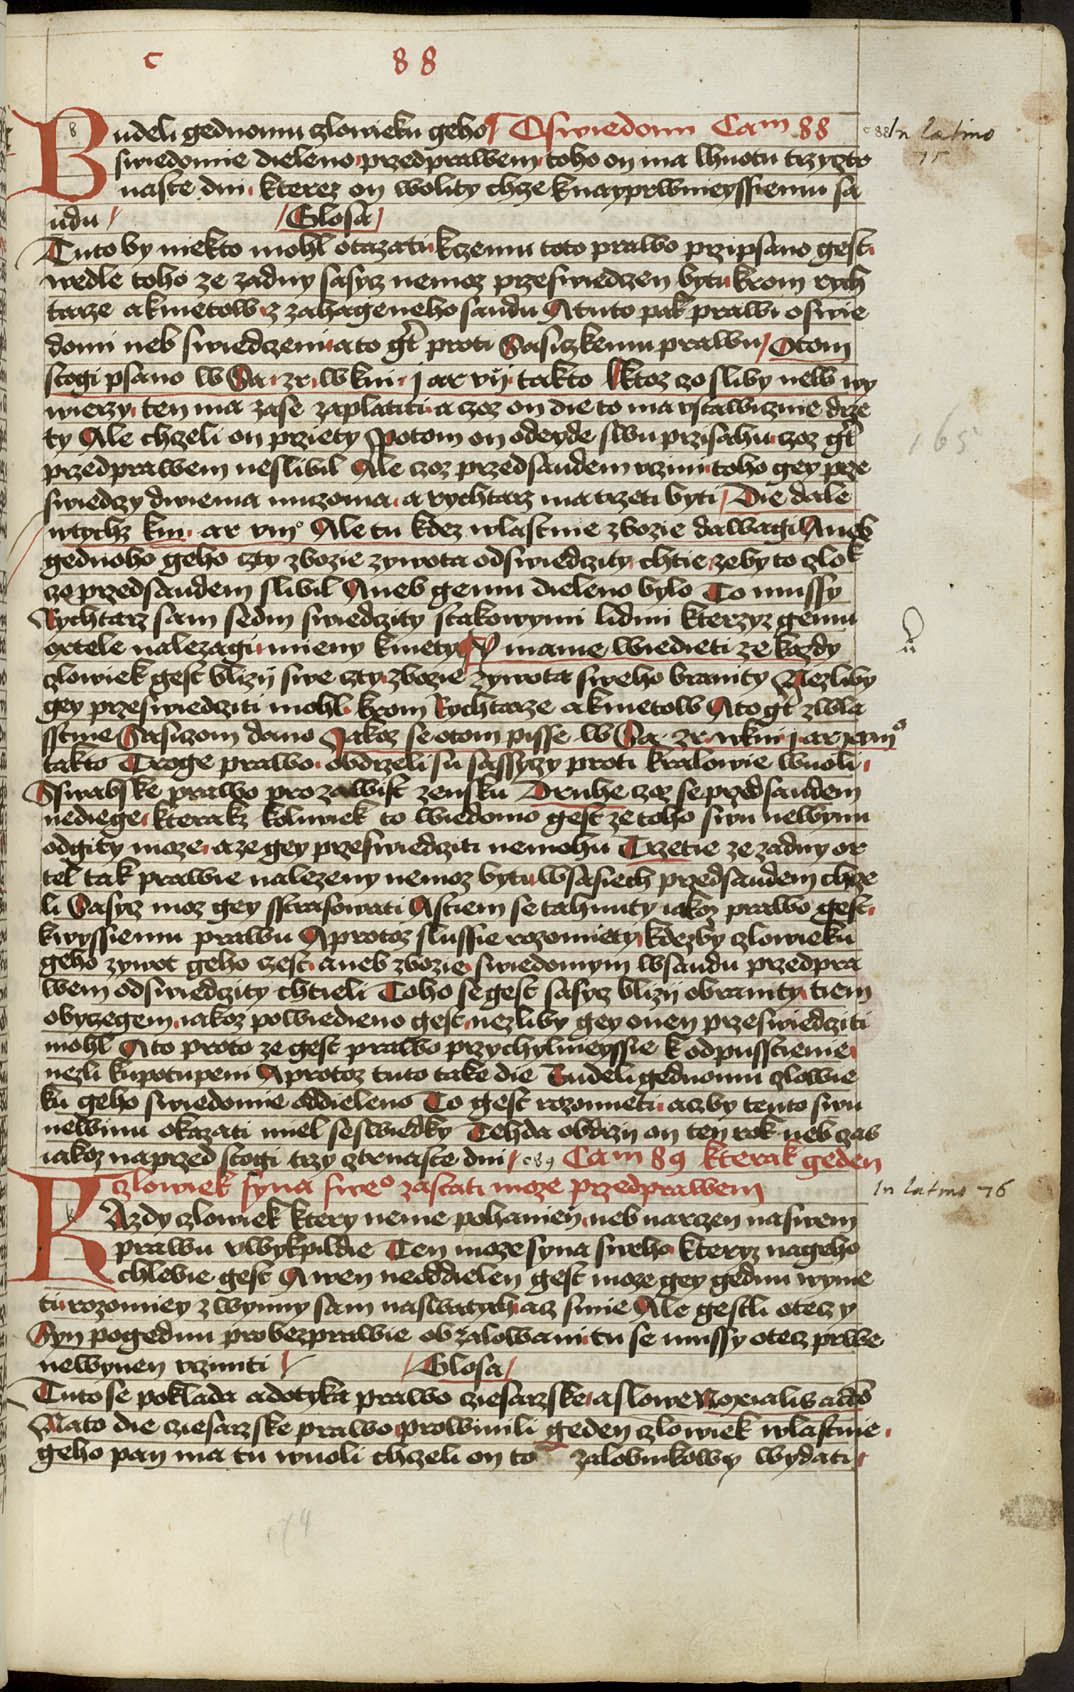 c 88
Budeli gednomu czlowieku geho Oswiedomi Cam 88
swiedomie dieleno przedprawem toho on ma lhuotu trzyczt
naste dni kterez on wolity chcze knayprwnieyssiemu sa
udu Glosa
Tuto by niekto mohl otazati kczemu toto prawo przipsano gest
wedle toho ze zadny sasycz nemoz przeswiedczen bytu krom rych
tarze a kmetow z zahageneho saudu A tuto pak prawi o swie
domi neb swiedczeniu a to gt proti Sasiczkemu prawu Otom
stogi psano w Sa zr w kni j ar vij takto Ktoz czo sliby neb wy
wierzy ten ma zase zaplatiti a czoz on die to ma vstawicznie drze
ty Ale chczeli on prziety Potom on odeyde swu przisahu czoz gt
przedprawem neslibil Ale czoz przedsaudem vczini toho gey prze
swiedczy dwiema muzoma a rychtarz ma trzeti byti Die dale
wtychz kni ar viii Ale tu kdez wlastnie zbozie dawagi Aneb
gednoho geho czty zbozie zywota odswiedczity chtie zeby to czlok
czo przedsaudem slibil Aneb gemu dieleno bylo To mussy
Rychtarz sam sedm swiedczity stakowymi lidmi kterzyz gemu
ortele nalezagi mieny kmety Y mame wiedieti ze kazdy
czlowiek gest blizij swe czty zbozie zywota sweho branity Nezliby
gey przeswiedcziti mohl krom Rychtarze a kmetow A to gt zwla
sstnie Sasiczom dano Jakoz se otom pisse w Sa zr w kni j ar xviii
takto Troge prawo obdrzeli su sassyczy proti kralowie wuoli
Sswabske prawo pro zawist zensku Druhe czoz se przed saudem
nediege kterakz koliwiek to wiedomo gest ze toho swu newynu
odgity moze a ze gey przeswiedcziti nemohu Trzetie ze zadny or
tel tak prawie nalezeny nemoz bytu wsasiech przedsaudem chcze
li Sasycz moz gey sstrafowati A stiem se tahnuty iakoz prawo gest
kwyssiemu prawu A protoz slussie rozomiety kdezby czlowieku
geho zywot geho czest aneb zbozie swiedomym wsaudu przedpra
wem odswiedczity chtieli Toho se gest sasycz blizij obranity tiem
obyczegem iakoz powiedieno gest nezliby gey onen przeswiedcziti
mohl A to proto ze gest prawo przychylnieyssie k odpusstienie
nezli kupotupeni A protoz tuto take die Budeli gednomu czlowie
ku geho swiedomie oddieleno To gest rozometi aczby tento swu
newinu okazati miel seswiedky Tehda obdrzij on ten rok neb czas
iakoz naprzed stogi trzy cztrnaste dni c 89 Cam 89 kterak geden
czlowiek syna sweo zastati moze przedprawem
KAzdy czlowiek ktery neme pohanien neb narczen naswem
prawu Ten moze syna sweho kteryz nageho
chlebie gest A wen neoddielen gest moze gey gednu wyme
tu rozomiey z wynny sam naswatych acz smie Ale gestli otecz y
Syn pogednu pro bezprawie obzalowani tu se mussy otecz prwe
newynen vczinti Glosa
Tuto se poklada a dotyka prawo cziesarzske a slowe Noxialis actio
Nato die cziesarzske prawo prowinili geden czlowiek wlastnie
geho pan ma tu wuoli chczeli on to zalobnikowy wydati
c 88 In latino
75
165
In latino 76
174